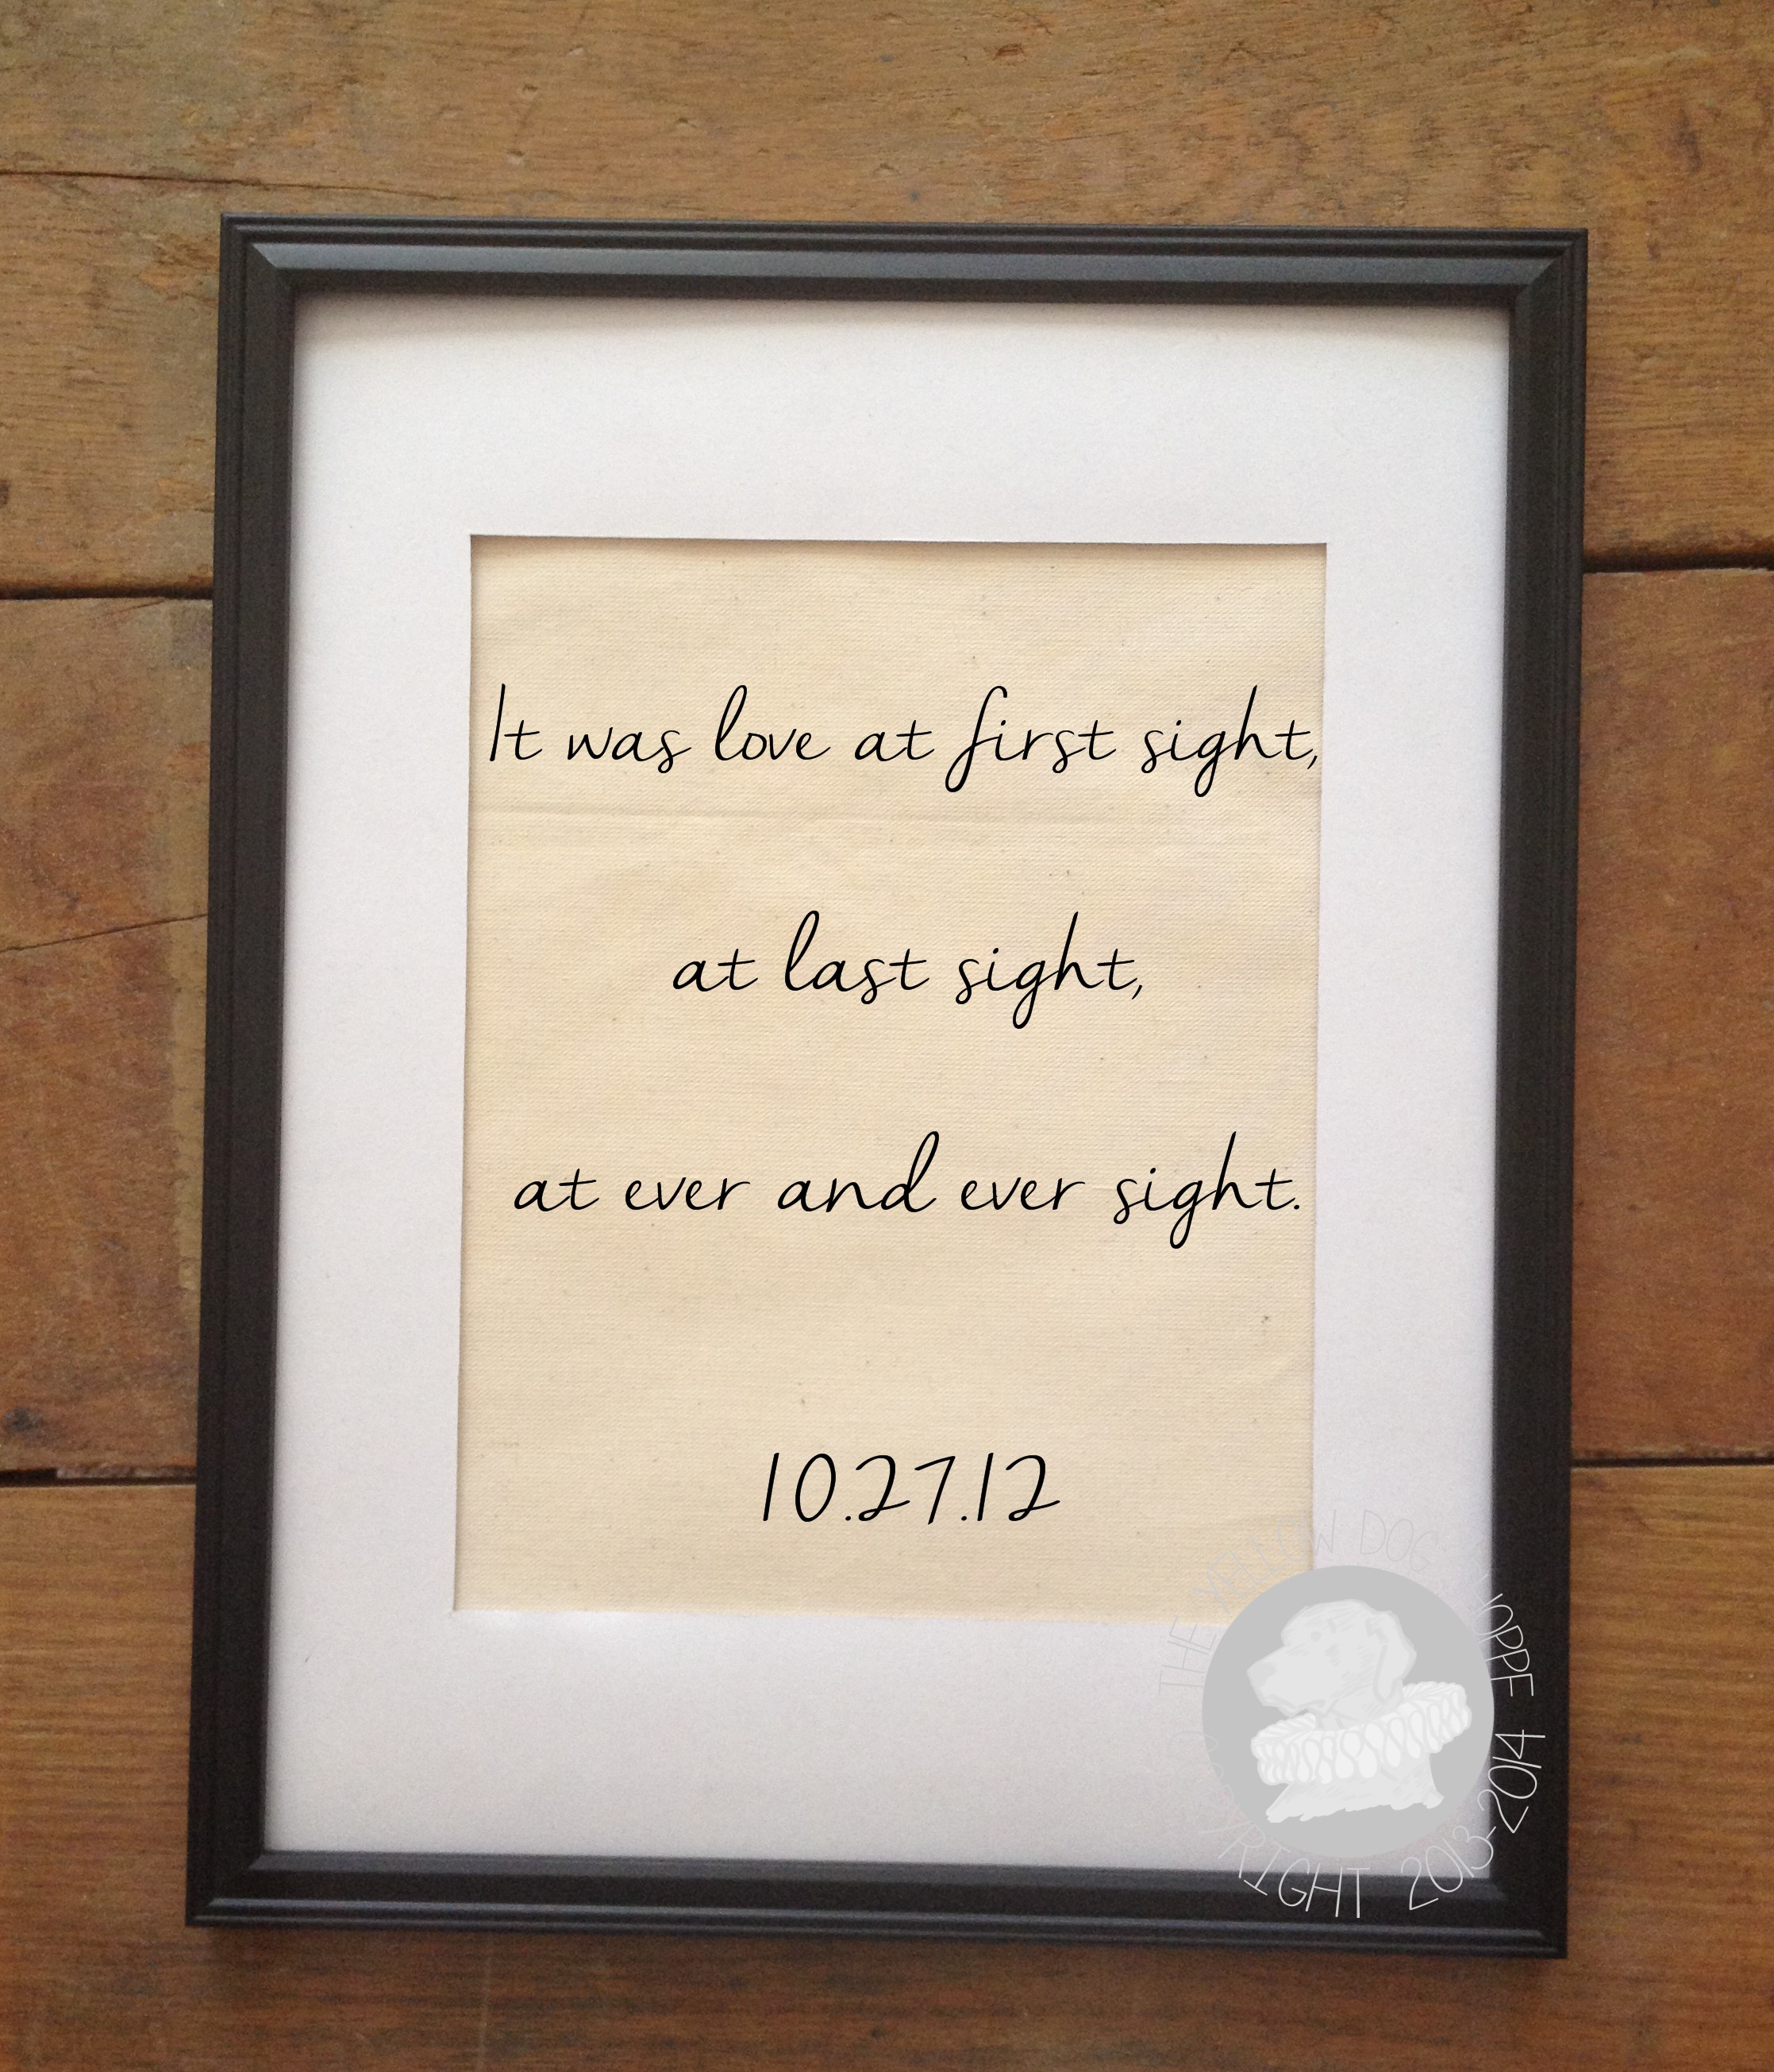 It was love at first sight,
at last sight,
at ever and ever sight.
10.27.12
THE YELLOW DOG SHOPPE
COPYRIGHT 2013-2014